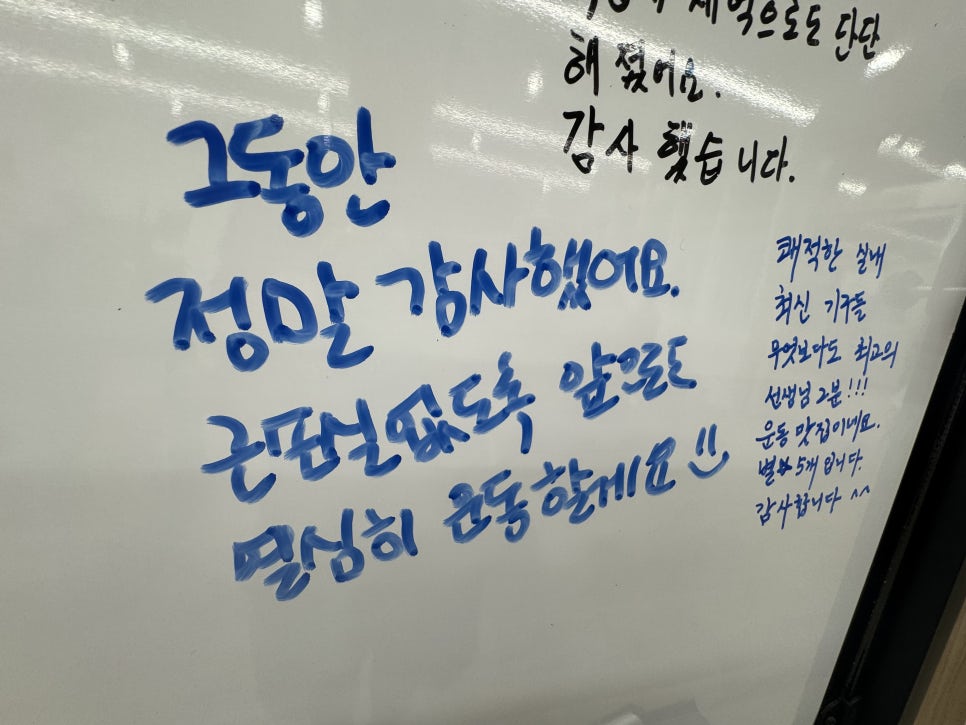 체력으로도 단단
해 졌어요.
감사 했습니다.
그동안
정말 감사했어요.
근판실 없도록 앞으로도
열심히 운동할게요
쾌적한 실내
최신 기구들
무엇보다도 최고의
선생님 2분!!!
운동 맛집이네요.
별☆ 5개 입니다.
감사합니다 ^^